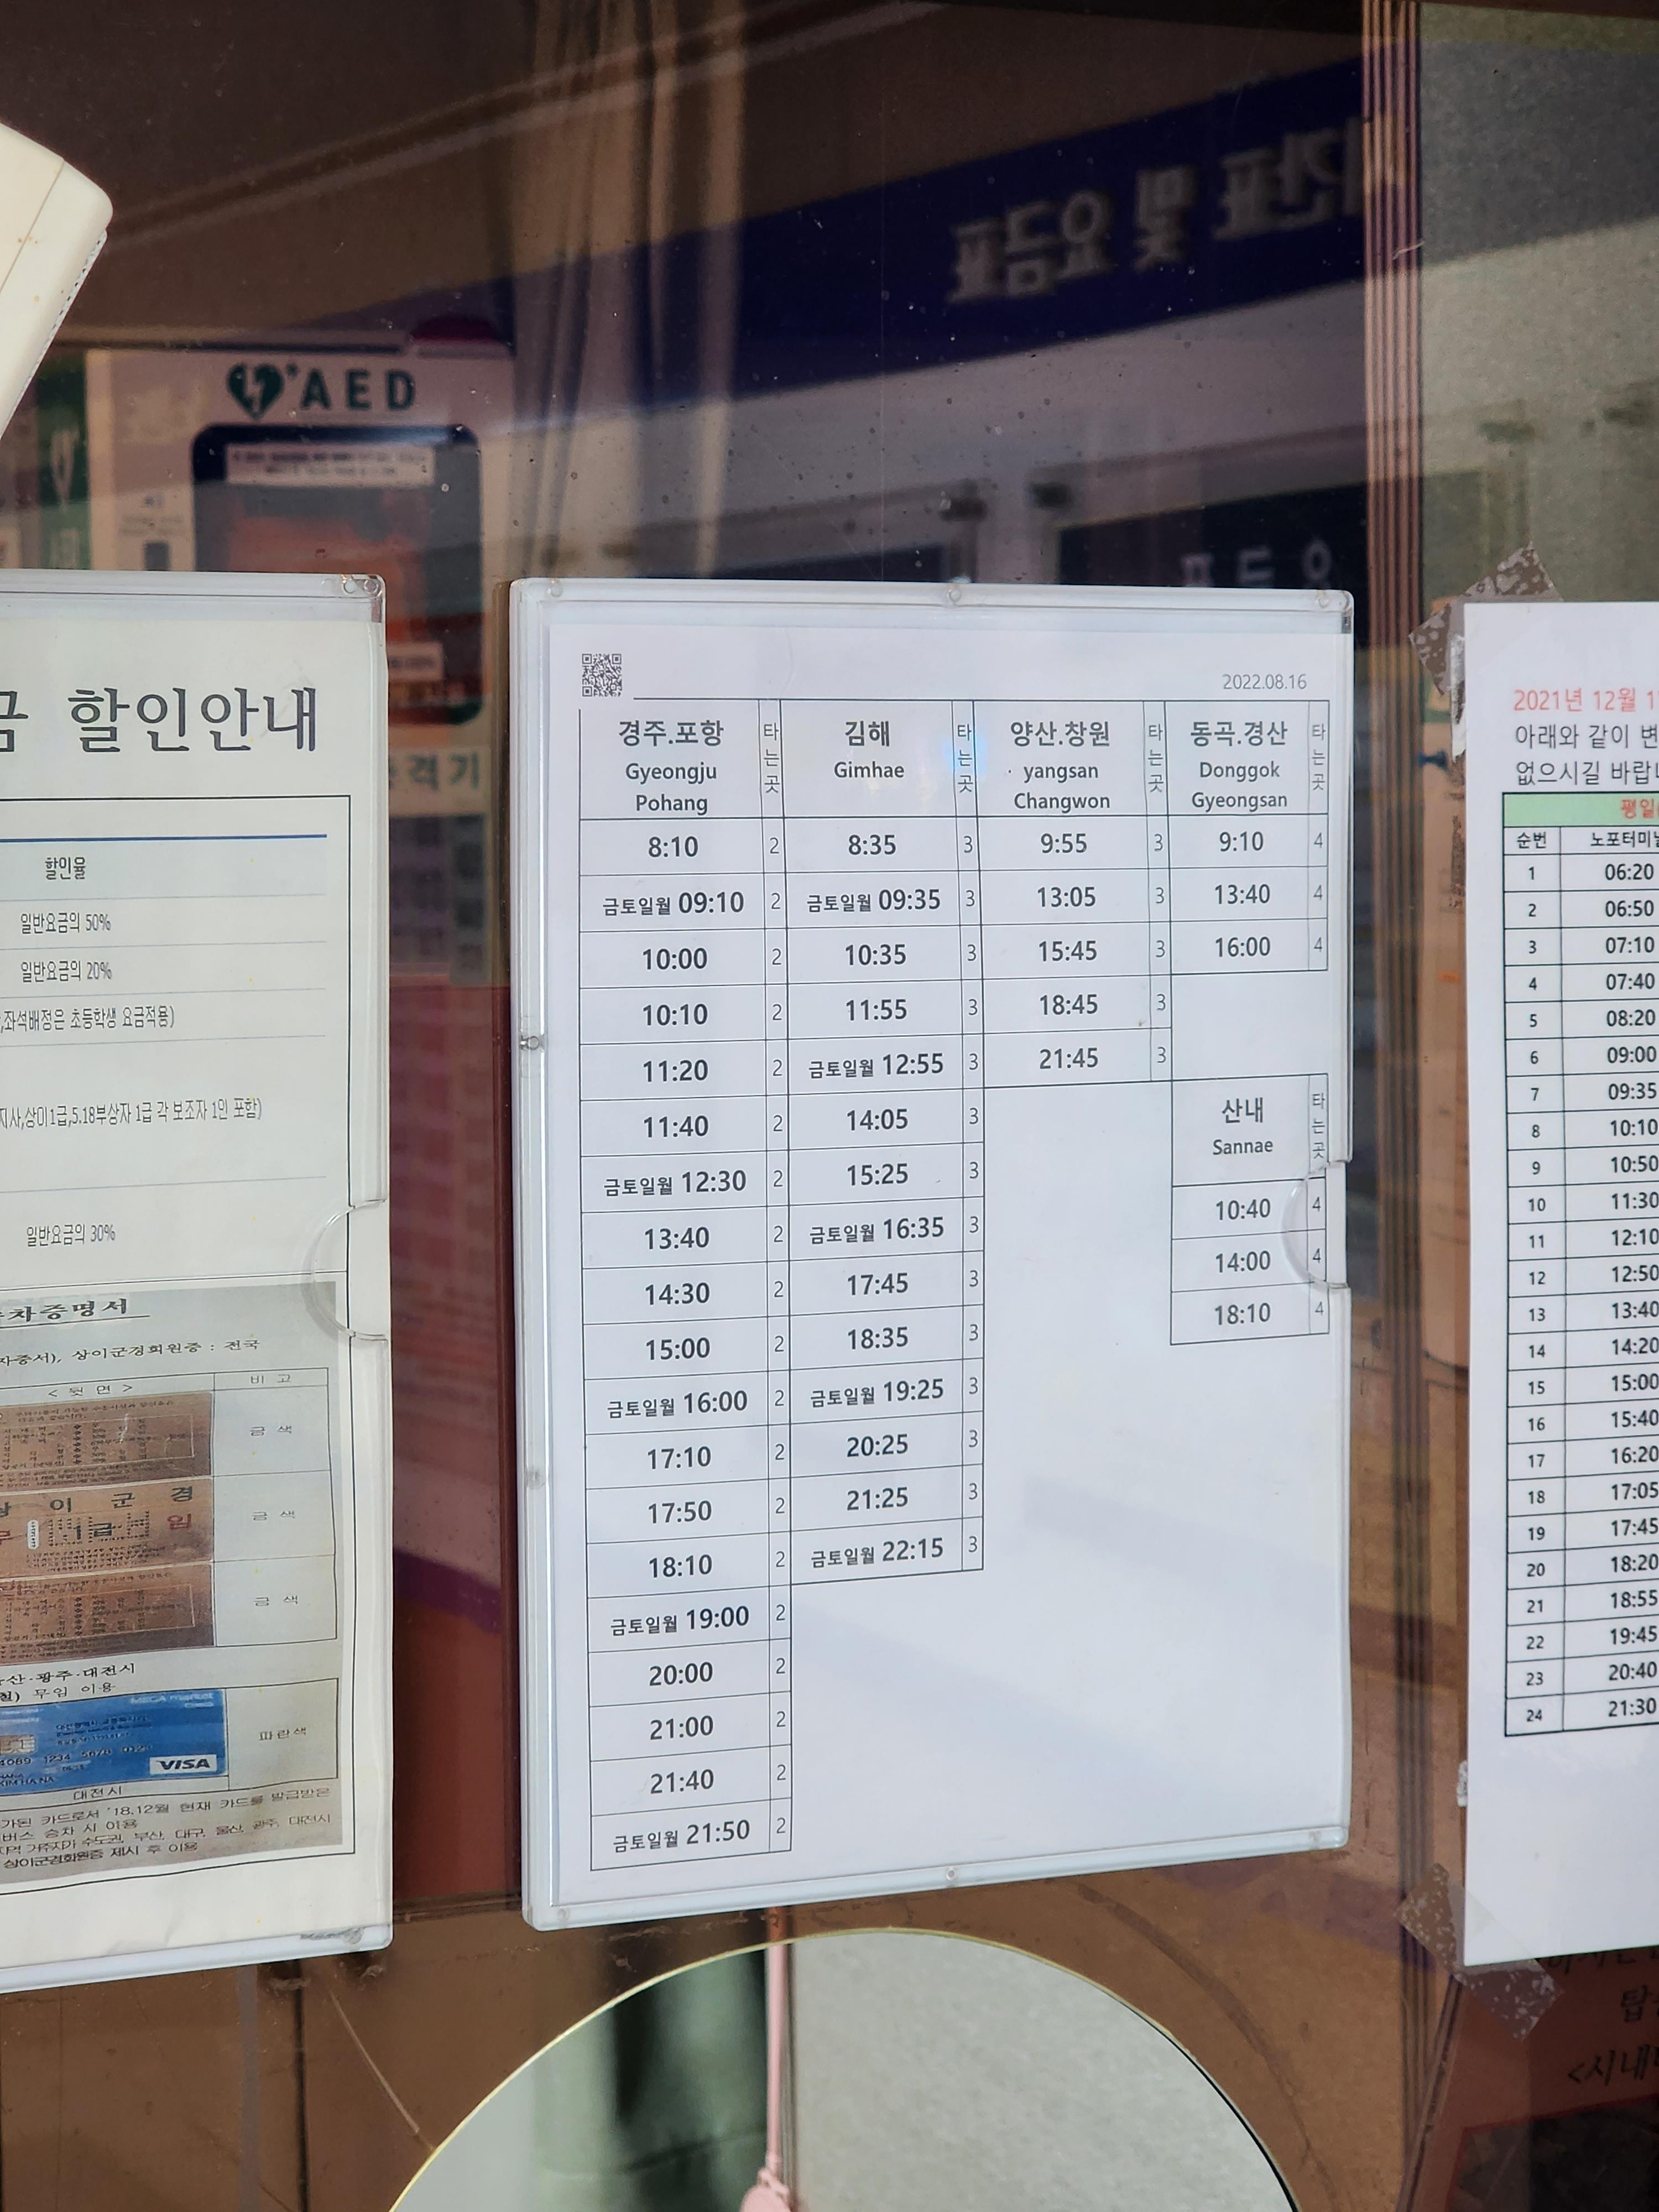 AED
격기
금 할인안내
할인율
일반요금의 50%
일반요금의 20%
좌석배정은 초등학생 요금적용)
지사,상이1급,5.18부상자 1급 각 보조자 1인 포함)
일반요금의 30%
차증명서
상이군경회원증 : 전국
< 뒷 면 > 비 고
금 색
상 이 군 경
금 색
금 색
산·광주·대전시
무임 이용
4089 1234 5678
VISA
파란색
대전시
카드로서 '18.12월 현재 카드를 발급받은
버스 승차 시 이용
거주자가 수도권, 부산, 대구, 울산, 광주, 대전시
상이군경회원증 제시 후 이용
2022.08.16
경주.포항 타는곳 김해 타는곳 양산.창원 타는곳 동곡.경산 타는곳
Gyeongju Gimhae yangsan Donggok
Pohang Changwon Gyeongsan
8:10 2 8:35 3 9:55 3 9:10 4
금토일월 09:10 2 금토일월 09:35 3 13:05 3 13:40 4
10:00 2 10:35 3 15:45 3 16:00 4
10:10 2 11:55 3 18:45 3
11:20 2 금토일월 12:55 3 21:45 3
11:40 2 14:05 3
금토일월 12:30 2 15:25 3
13:40 2 금토일월 16:35 3
14:30 2 17:45 3
15:00 2 18:35 3
금토일월 16:00 2 금토일월 19:25 3
17:10 2 20:25 3
17:50 2 21:25 3
18:10 2 금토일월 22:15 3
금토일월 19:00 2
20:00 2
21:00 2
21:40 2
금토일월 21:50 2
산내 타는곳
Sannae
10:40 4
14:00 4
18:10 4
2021년 12월 1
아래와 같이 변
없으시길 바랍니
평일
순번 노포터미널
1 06:20
2 06:50
3 07:10
4 07:40
5 08:20
6 09:00
7 09:35
8 10:10
9 10:50
10 11:30
11 12:10
12 12:50
13 13:40
14 14:20
15 15:00
16 15:40
17 16:20
18 17:05
19 17:45
20 18:20
21 18:55
22 19:45
23 20:40
24 21:30
탑
<시내